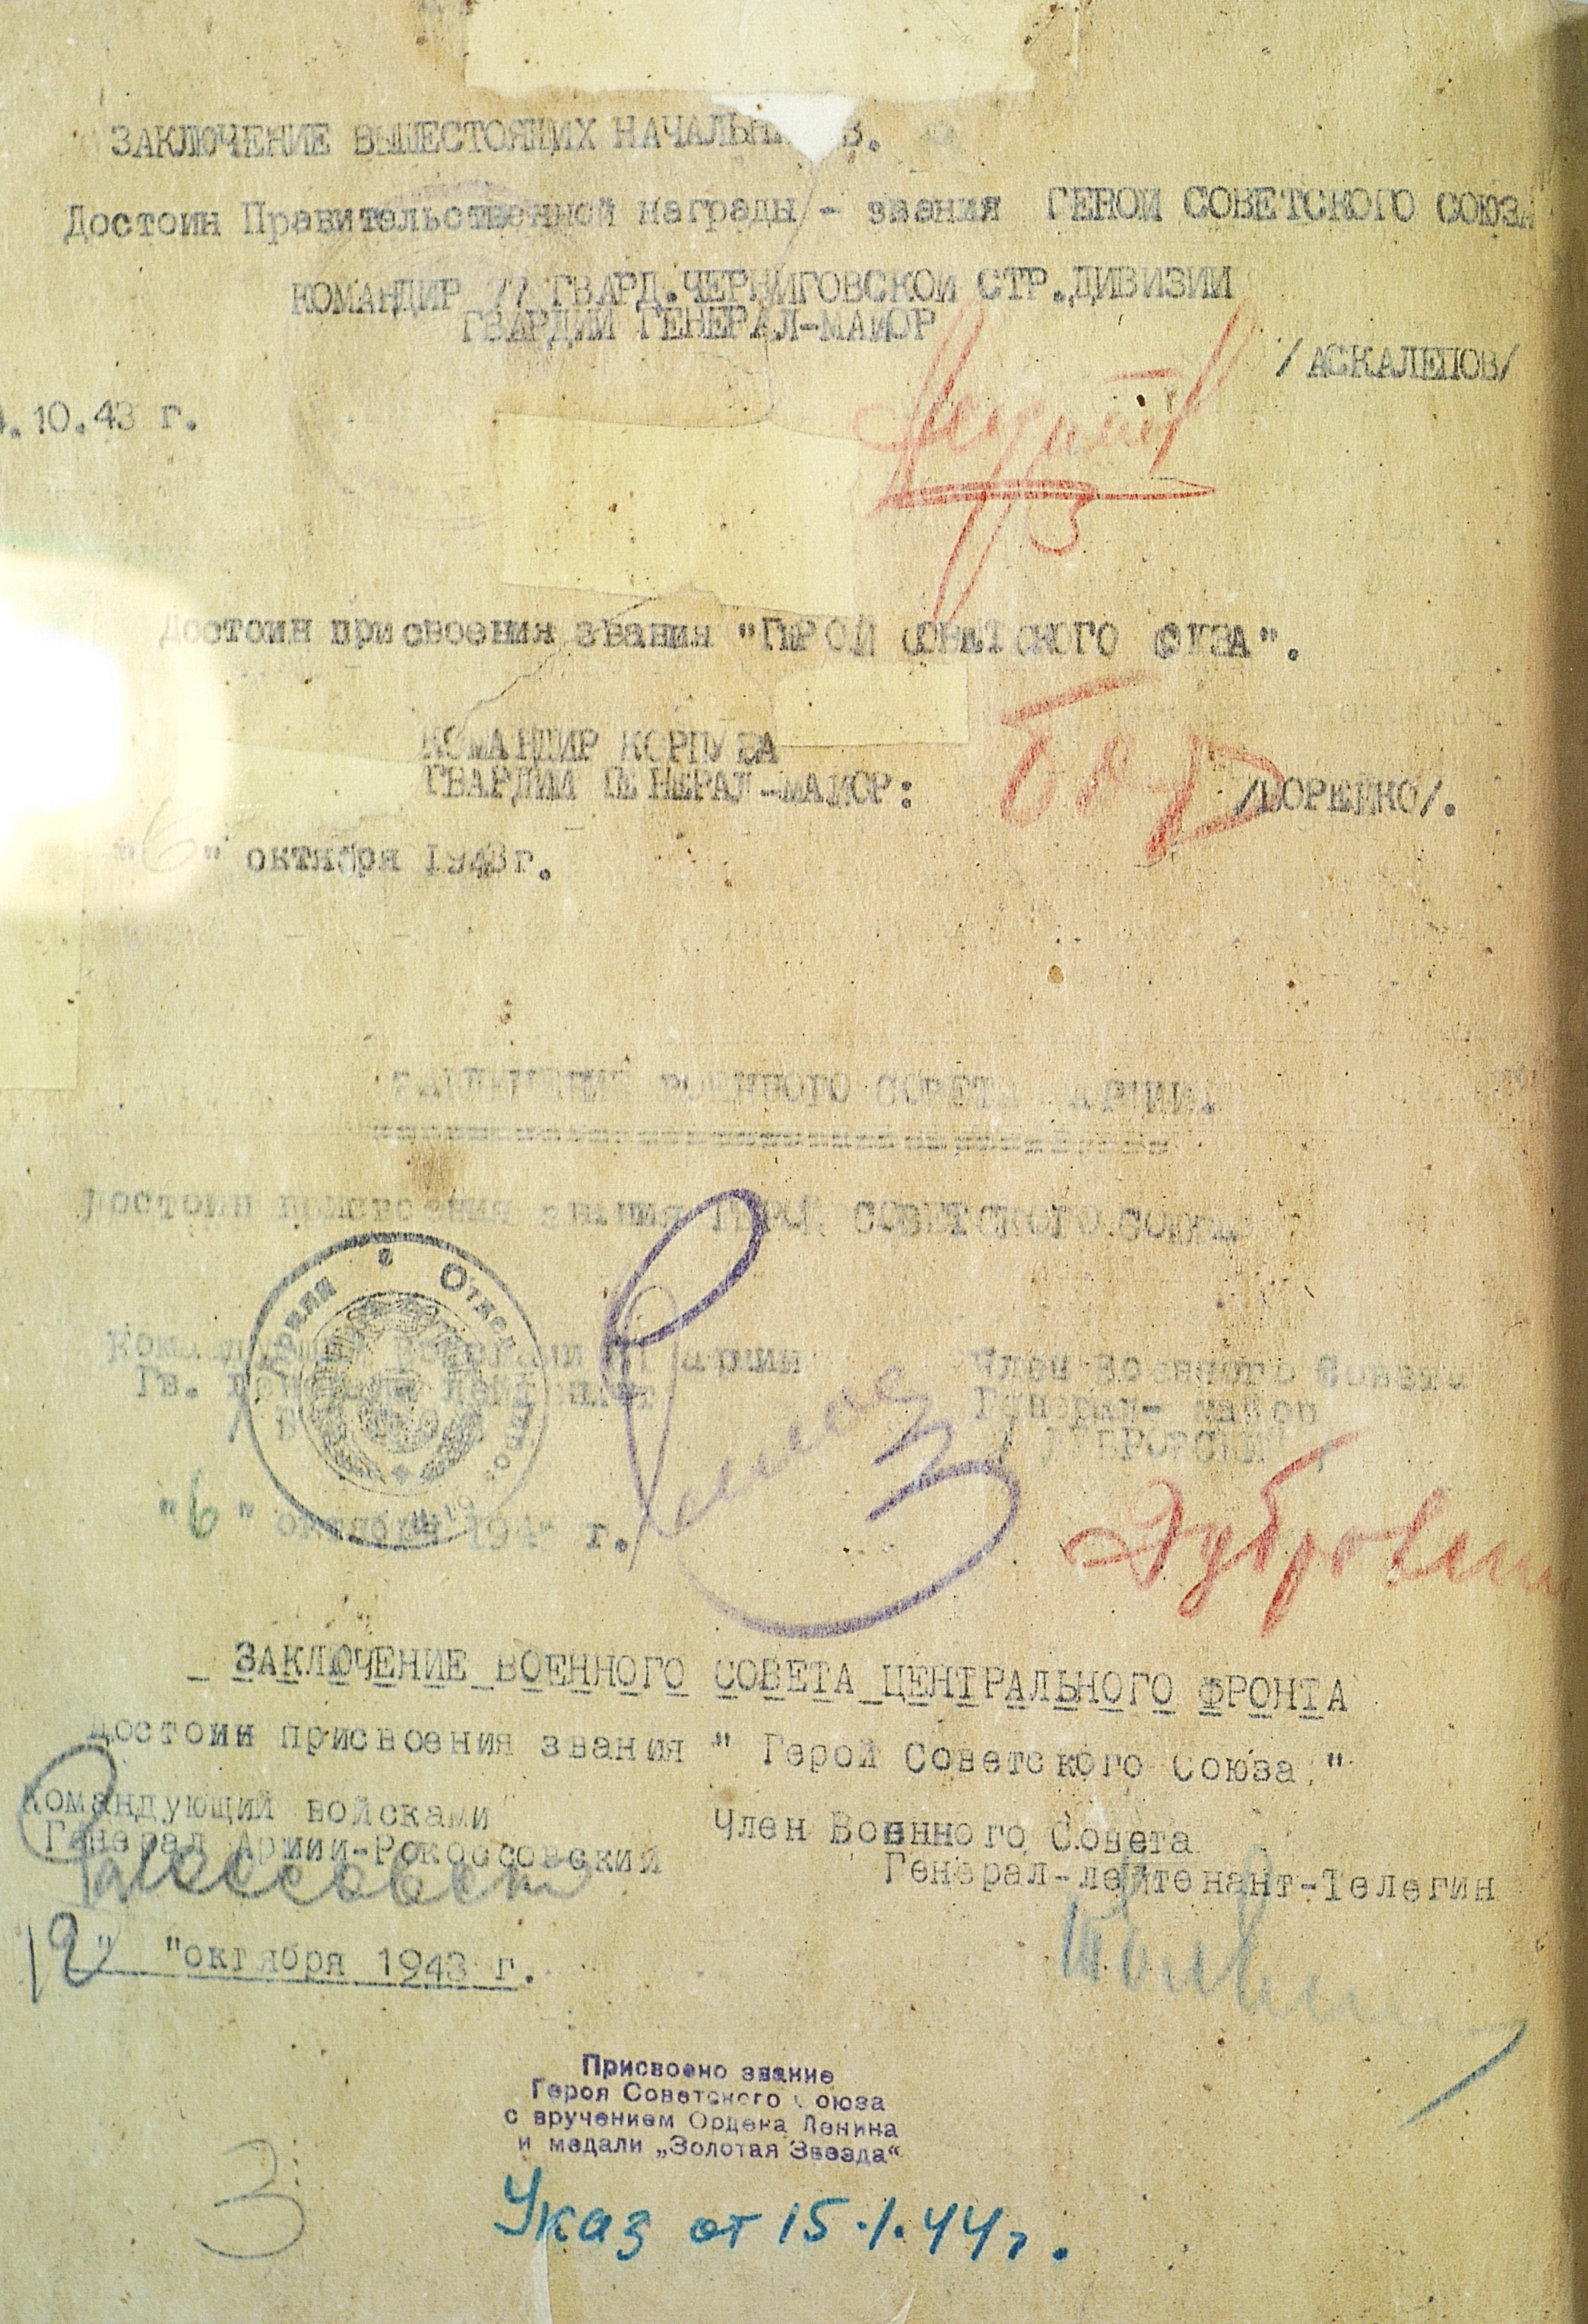 ЗАКЛЮЧЕНИЕ ВЫШЕСТОЯЩИХ
Достоин Правительственной награды - звания ГЕРОЙ СОВЕТСКОГО СОЮЗА
КОМАНДИР 77 ГВАРД.ЧЕРНИГОВСКОЙ СТР.ДИВИЗИИ
ГВАРДИИ ГЕНЕРАЛ-МАЙОР
/АСКАЛЕПОВ/
.10.43 г.
Достоин присвоения звания "ГЕРОЙ СОВЕТСКОГО СОЮЗА".
КОМАНДИР КОРПУСА
ГВАРДИИ ГЕНЕРАЛ-МАЙОР:
"6" октября 1943г.
ВОЕННОГО СОВЕТА АРМИИ.
Достоин присвоения звания ГЕРОЙ СОВЕТСКОГО СОЮЗА
армии
Член Военного Совета
Генерал-майор
Дубровский
"6" октября г.
ЗАКЛЮЧЕНИЕ ВОЕННОГО СОВЕТА ЦЕНТРАЛЬНОГО ФРОНТА
Достоин присвоения звания " Герой Советского Союза "
Командующий войсками
Генерал Армии-Рокоссовский
Член Военного Совета
Генерал-лейтенант-Телегин
12" "октября 1943 г.
Присвоено звание
Героя Советского Союза
с вручением Ордена Ленина
и медали „Золотая Звезда“
3
Указ от 15.1.44г.